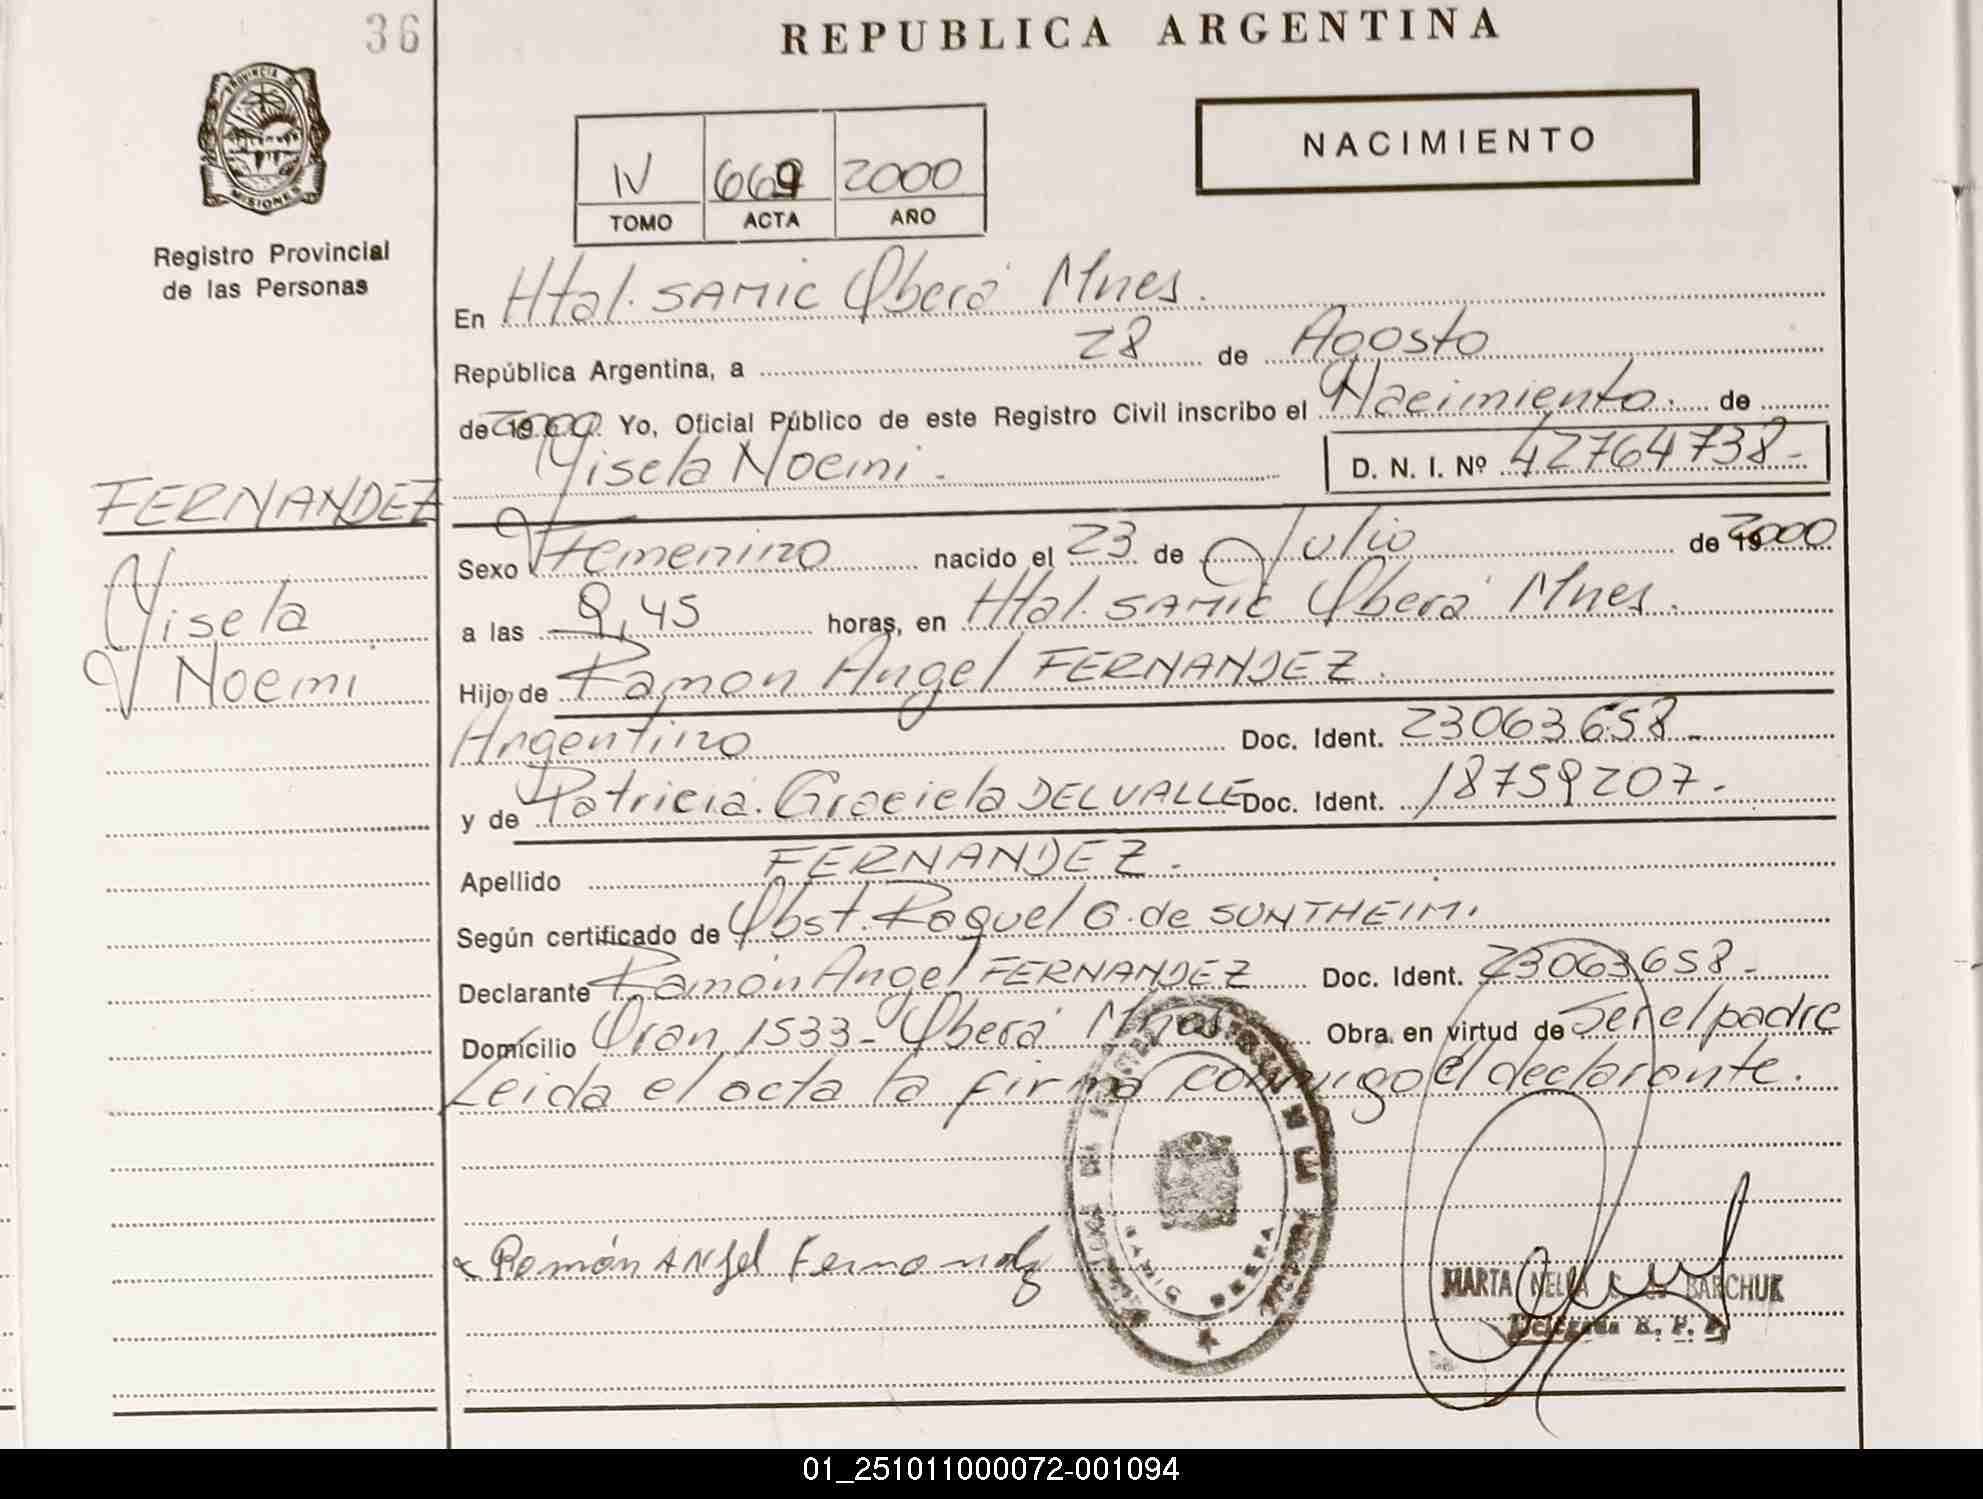 36
REPUBLICA ARGENTINA
PROVINCIA DE
MISIONES
Registro Provincial
de las Personas
NACIMIENTO
IV 669 2000
TOMO ACTA AÑO
En Htal. SAMIC Oberá Mnes.
República Argentina, a 28 de Agosto
de 2000 Yo, Oficial Público de este Registro Civil inscribo el Nacimiento. de
Yisela Noemi. D. N. I. Nº 42764738-
FERNANDEZ
Yisela
Noemi
Sexo Femenino nacido el 23 de Julio de 2000
a las 9,45 horas, en Htal. SAMIC Oberá Mnes.
Hijo de Ramon Angel FERNANDEZ.
Argentino Doc. Ident. 23063658-
y de Patricia. Graciela DELVALLE Doc. Ident. 18759207.
Apellido FERNANDEZ.
Según certificado de Obst. Raquel G. de SUNTHEIM.
Declarante Ramón Angel FERNANDEZ Doc. Ident. 23063658-
Domicilio Oran 1533- Oberá Mnes Obra en virtud de Ser el padre
Leida el acta la firma conmigo el declarante.
Román ANgel Fernandez
MARTA NELIDA BARCHUK
Delegada R. P. P.
01_251011000072-001094